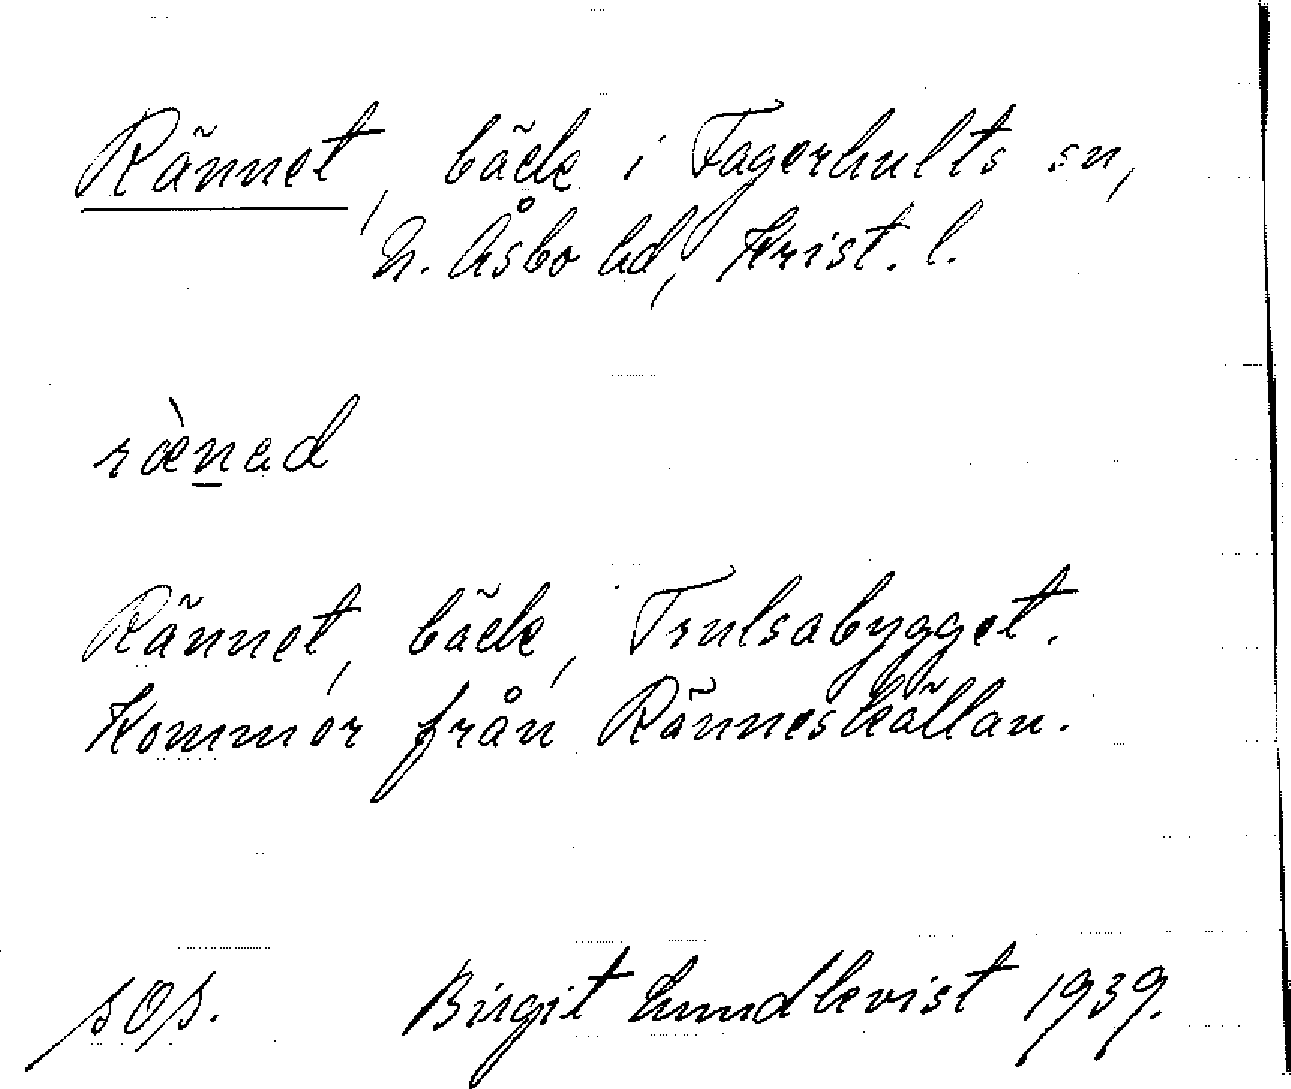 Rännet, bäck i Fagerhults sn,
N. Åsbo hd, Krist. l.
ræ̀n̲ad
Rännet, bäck, Trulsabygget.
Kommer från Ränneskällan.
sos. Birgit Lundkvist 1939.